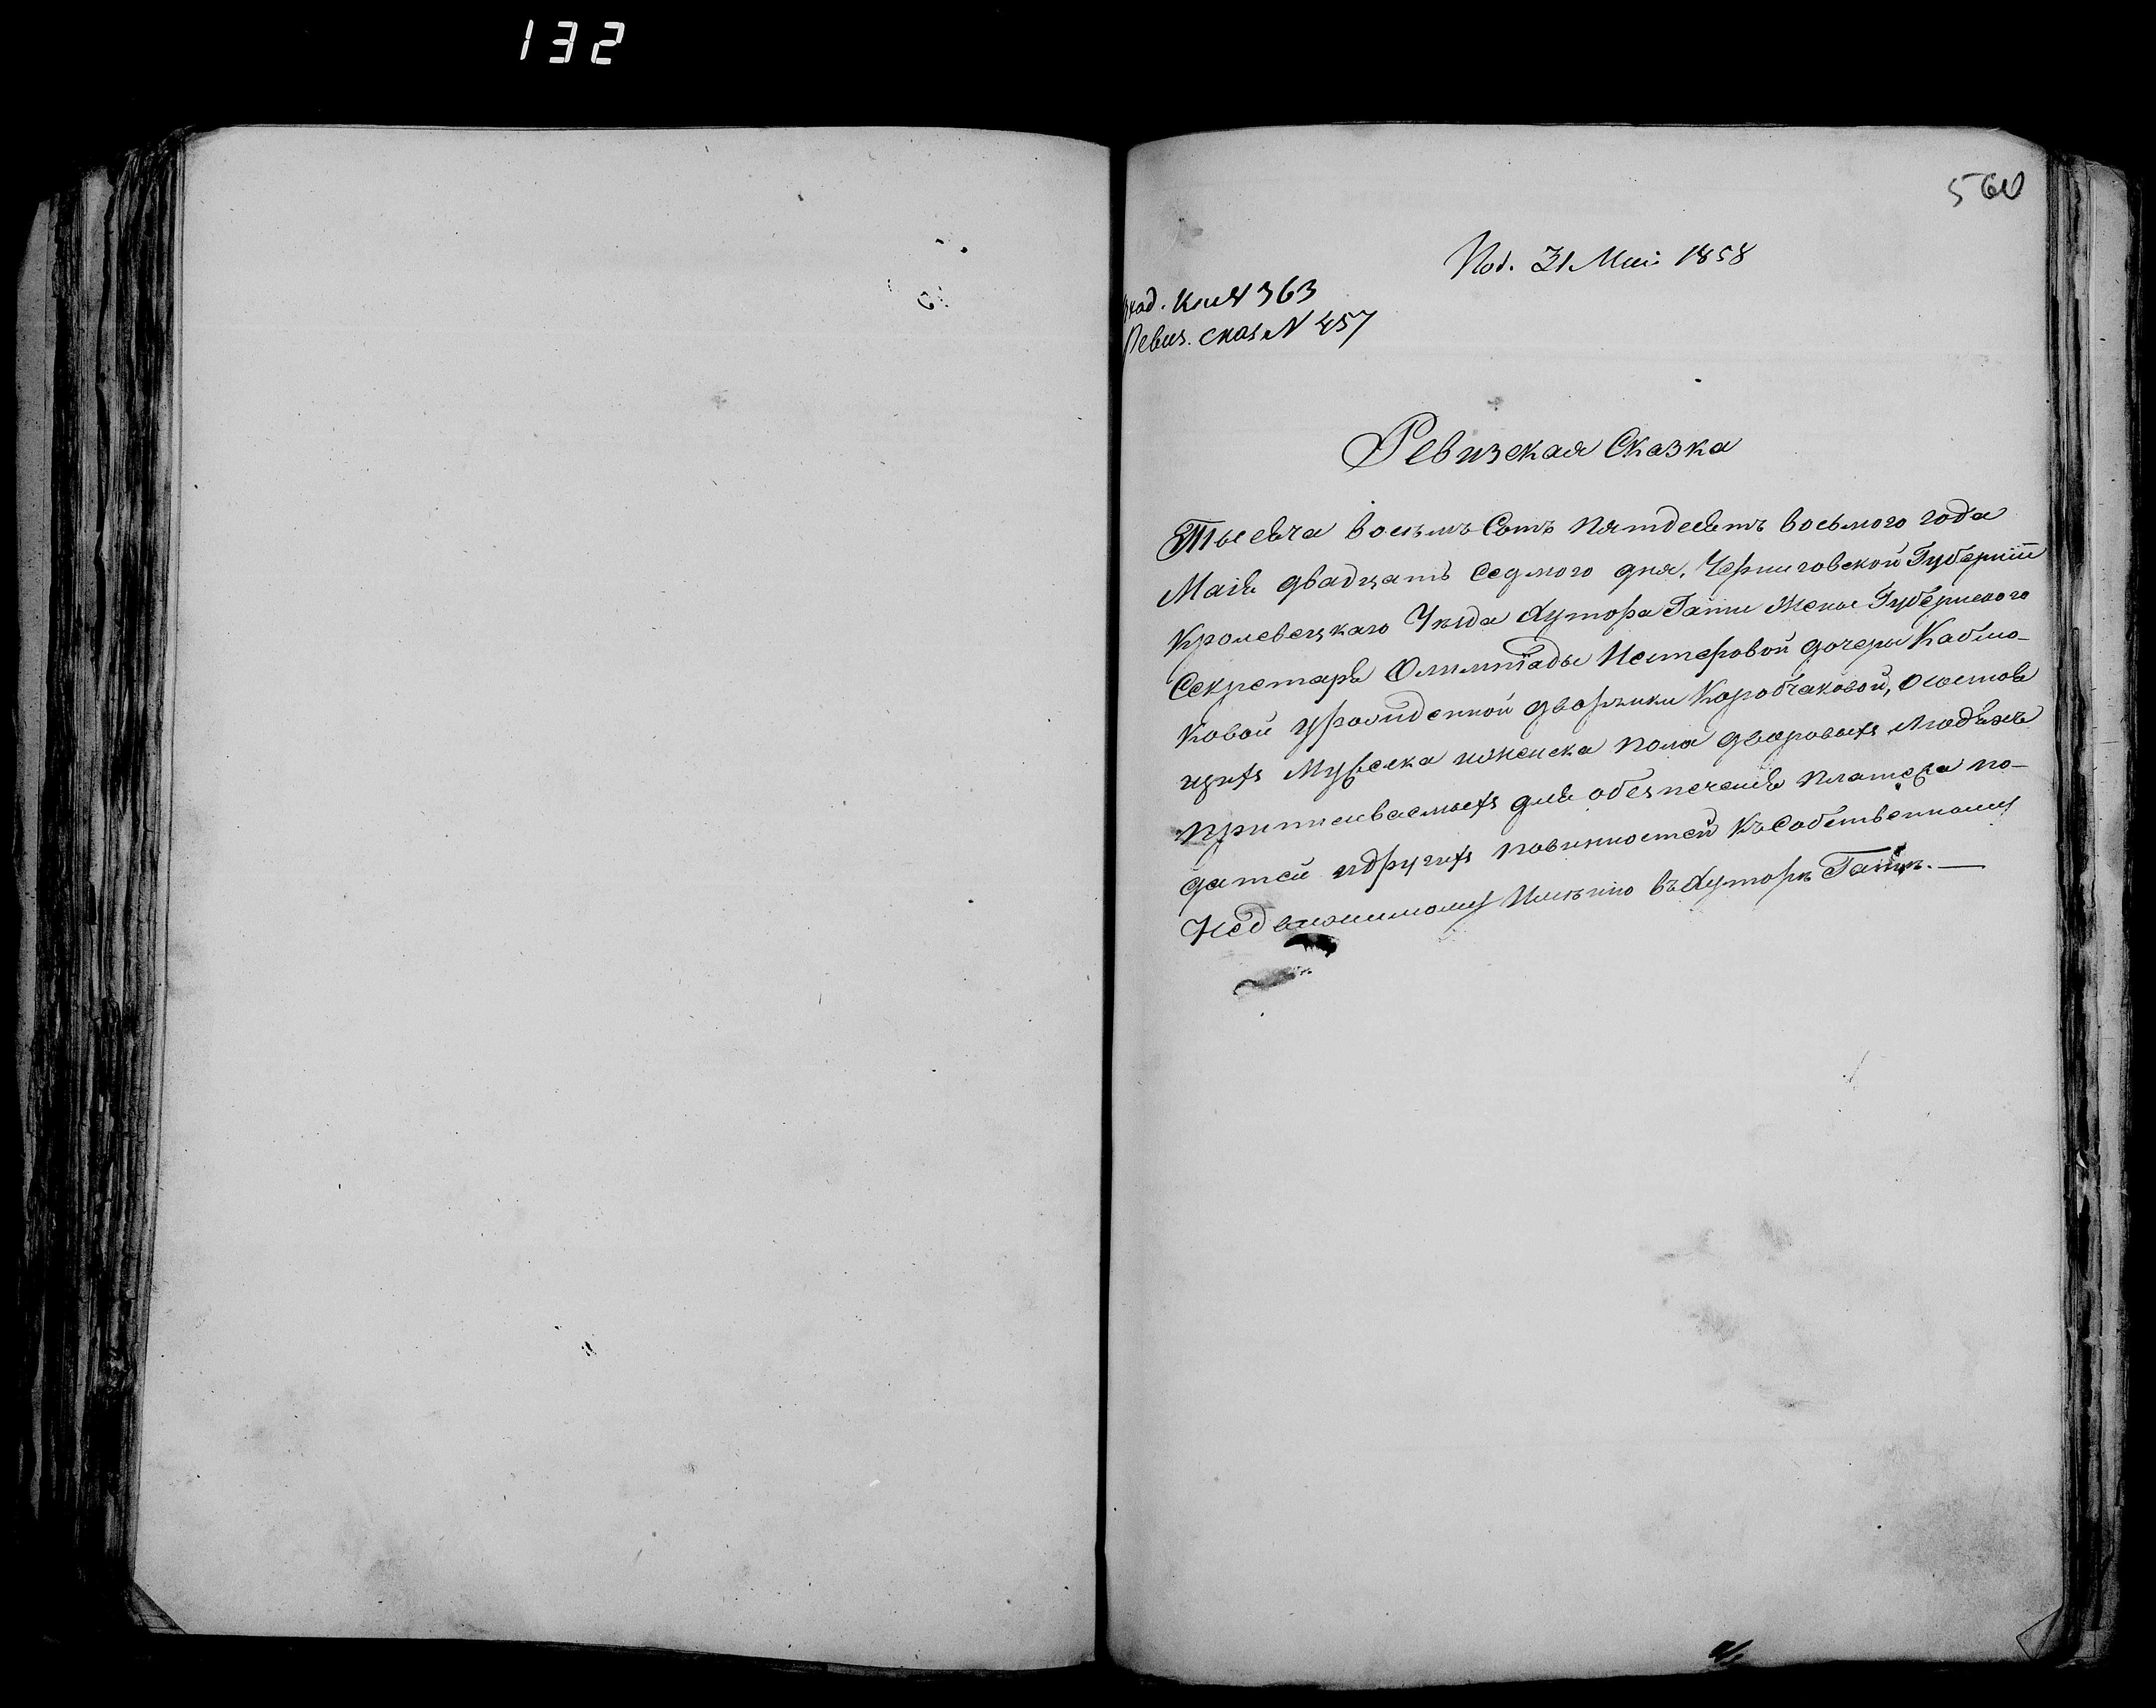 132
560
Под. 31 Маія 1858
Вход. Кни № 363
Ревиз. сказ. № 457
Ревизская Сказка
Тысяча восемъ Сотъ пятдесятъ восьмого года
Маія двадцать седмого дня, Черниговской Губерніи
Кролевецкаго Уѣзда Хутора Гатки Жены Губернского
Секретаря Олимпіады Нестеровой дочери Кабло-
ковой урожденной дворянки Коробчаковой, о состоя
щихъ Мужеска и женска пола дворовыхъ Людяхъ
приписываемыхъ для обезпеченія платежа по-
датей и другихъ повинностей къ Собственному
Недвижимому Имѣнію въ Хуторѣ Гаткѣ. —